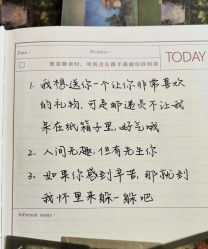 Date :
Weather :
TODAY
1. 我想送你一个让你非常喜欢
的礼物，可是邮递员不让我
呆在纸箱子里，好气哦
2. 人间无趣，但有先生你
3. 如果你感到辛苦，那就到
我怀里来躲一躲吧
Informal essay :